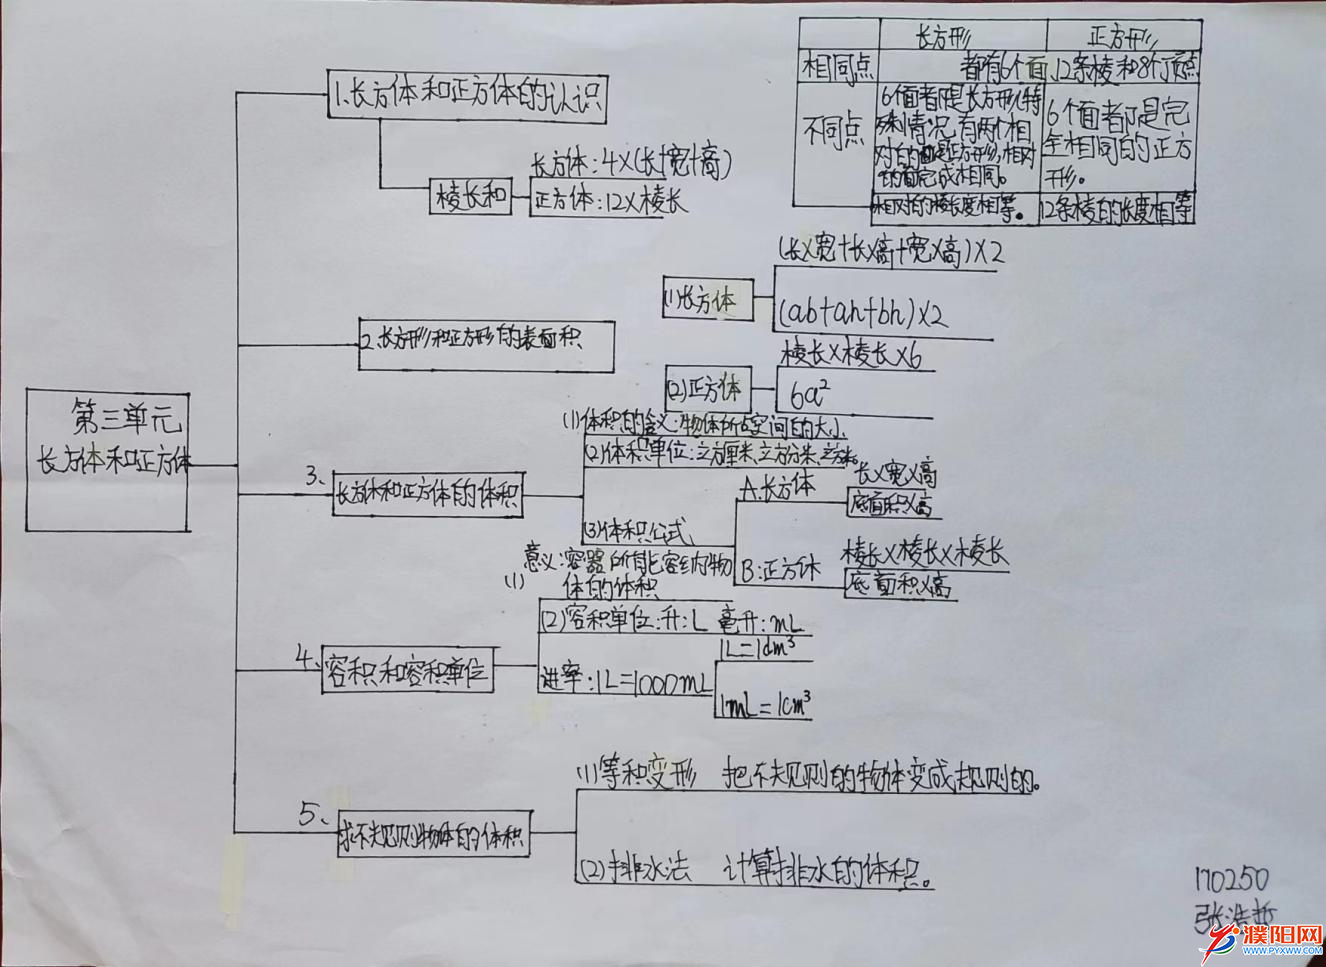 长方形 正方形
相同点 都有6个面、12条棱和8个顶点
不同点
6个面都是长方形(特
殊情况有两个相
对的面是正方形),相对
的面完成相同。
6个面都是完
全相同的正方
形。
相对的棱长度相等。 12条棱的长度相等
1.长方体和正方体的认识
棱长和
长方体:4×(长+宽+高)
正方体:12×棱长
2.长方形和正方形的表面积
(1)长方体
(长×宽+长×高+宽×高)×2
(ab+ah+bh)×2
(2)正方体
棱长×棱长×6
6a²
第三单元
长方体和正方体
3、
长方体和正方体的体积
(1)体积的含义:物体所占空间的大小
(2)体积单位:立方厘米、立方分米、立方米。
(3)体积公式
A.长方体
长×宽×高
底面积×高
B:正方体
棱长×棱长×棱长
底面积×高
4、
容积和容积单位
(1)
意义:容器所能容纳物
体的体积
(2)容积单位:升:L 毫升:mL
进率:1L=1000mL
1L=1dm³
1mL=1cm³
5、
求不规则物体的体积
(1)等积变形 把不规则的物体变成规则的。
(2)排水法 计算排水的体积。
170250
张浩哲
濮阳网
WWW.PYXWW.COM